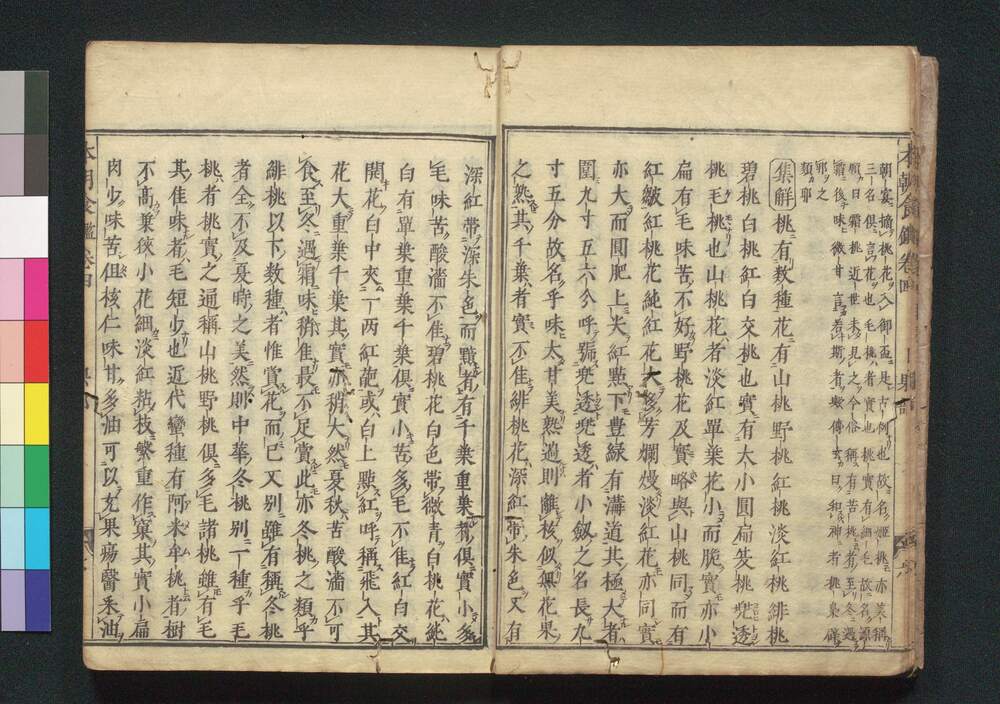 朝宴摘桃花入御盃是古例也故名
三名俱言花也毛桃者實也桃實有細毛故名
曰霜桃近世未見之今俗稱有苦桃者至冬遇
霜後味微甘
邪之
類耶
集解桃有數種花有山桃野桃紅桃淡紅桃緋桃
碧桃白桃紅白交桃也實有大小圓扁笈桃兜透
桃毛桃也山桃花者淡紅單葉花小而脆實亦小
扁有毛味苦不好野桃花及實略與山桃同而有
紅皺紅桃花純紅花大多芳爛熳淡紅花亦同實
亦大而圓肥上尖紅點下豊綠有溝道其極大者
圍九寸五六分呼號兜透兜透者小劔之名長九
寸五分故名乎味太甘美熟過則離核似無花果
之熟其千葉者實不佳緋桃花深紅帶朱色又有
深紅帶深朱色而黯者有千葉重葉者俱實小多
毛味苦酸濇不佳碧桃花白色帶微青白桃花純
白有單葉重葉千葉俱實小苦多毛不佳紅白交
開花白中夾一丁兩紅葩或白上點紅呼稱飛入其
花大重葉千葉其實亦稍大然夏秋苦酸濇不可
食至冬遇霜味稍佳最不足賞此亦冬桃之類乎
緋桃以下數種者惟賞花而已又別雖有稱冬桃
者全不及夏時之美然則中華冬桃別一種乎毛
桃者桃實之通稱山桃野桃俱多毛諸桃雖有毛
其佳味者毛短少也近代蠻種有阿米牟桃者樹
不高葉狹小花細淡紅葩枝繁重作窠其實小扁
肉少味苦但核仁味甘多油可以充果瘍醫釆油
本朝食鑑卷四